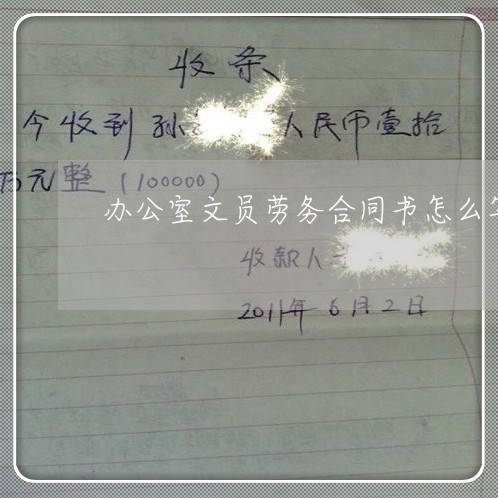 收条
今收到孙 人民币壹拾
万元整（100000）
办公室文员劳务合同书怎么
收款人
2011年6月2日